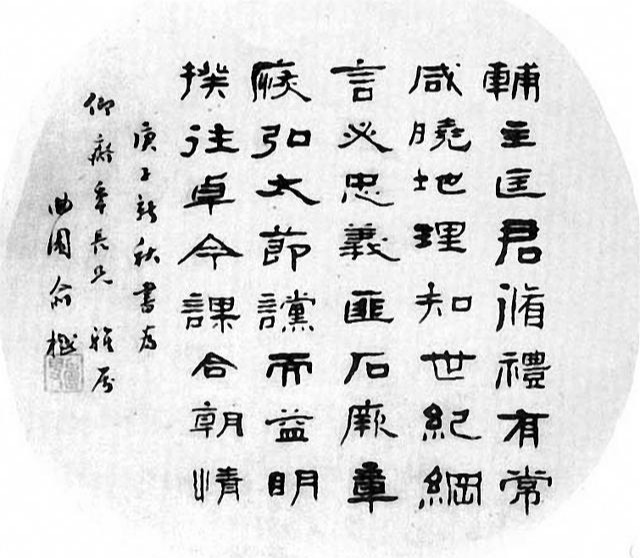 輔主匡君循禮有常
咸曉地理知世紀綱
言必忠義匪石厥章
恢弘大節讜而益明
揆往卓今謀合朝情
庚子新秋書為
仰年長兄雅屬
曲園俞樾